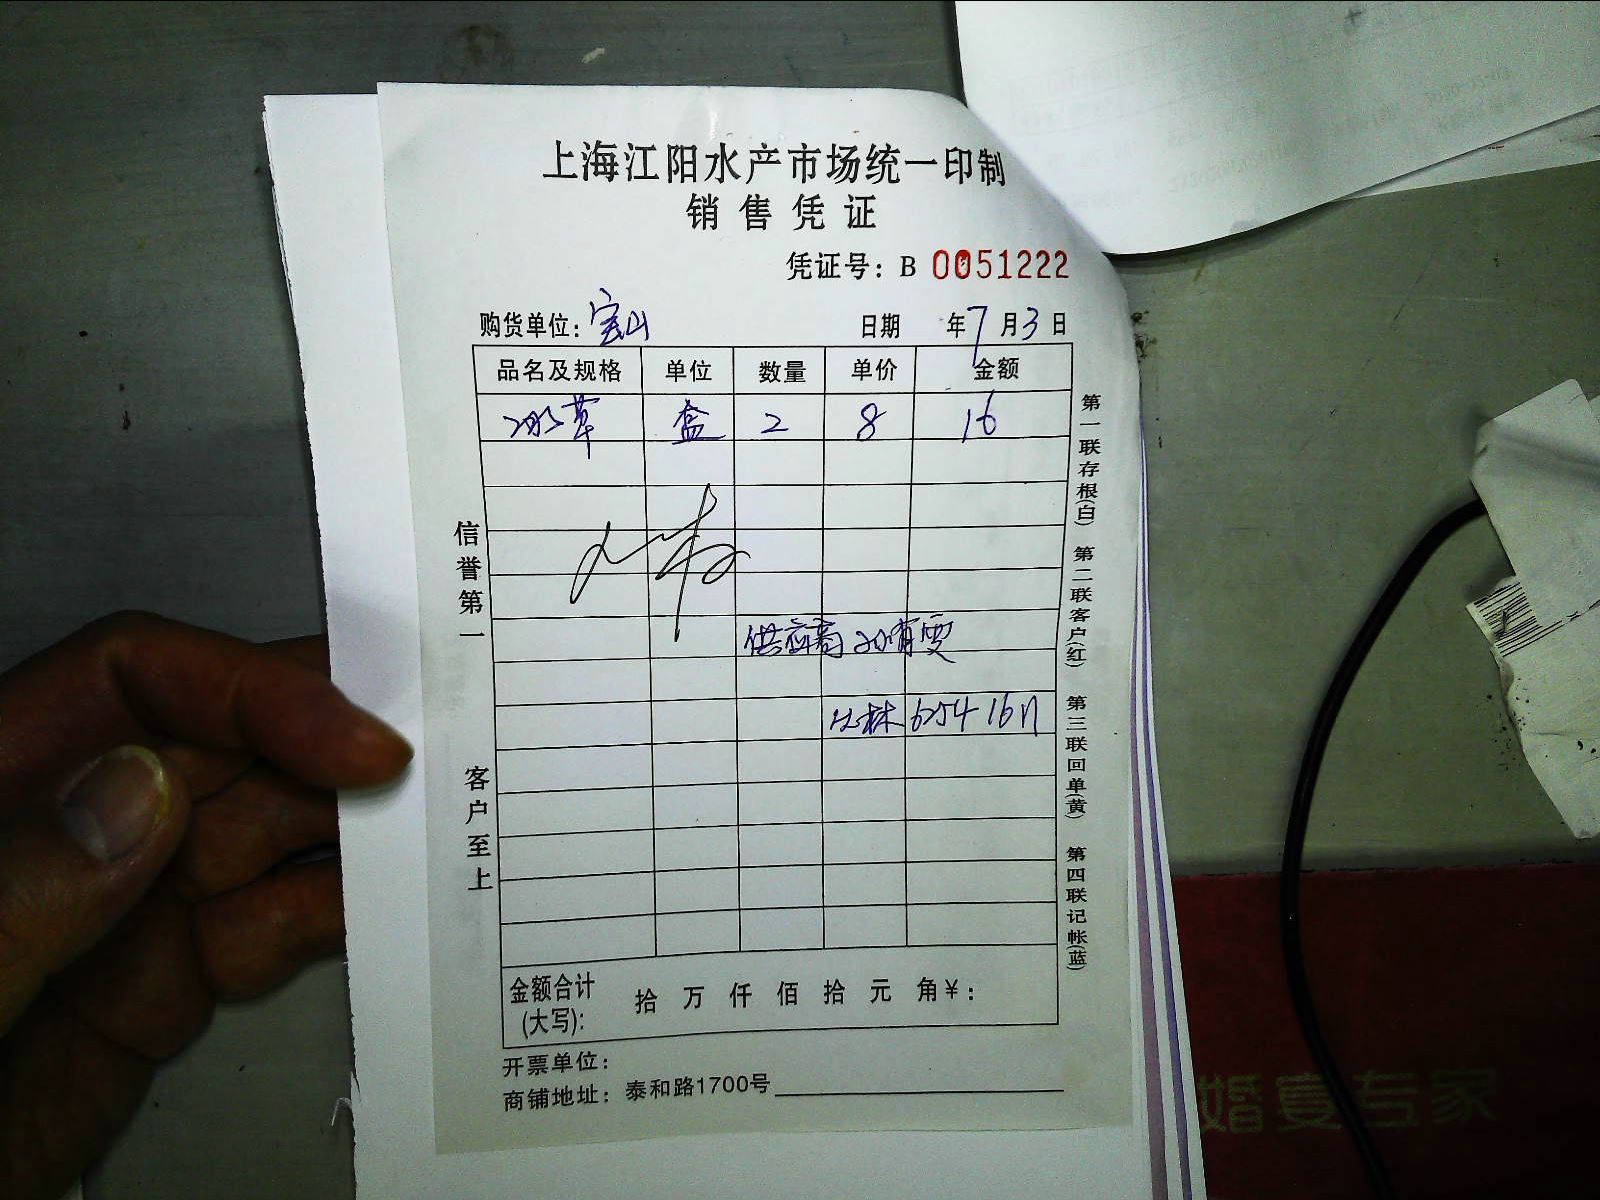 上海江阳水产市场统一印制
销售凭证
凭证号：B 0051222
购货单位：宝山 日期 年7月3日
品名及规格 单位 数量 单价 金额
冰草 盒 2 8 16
供应商
6254 16
信誉第一
客户至上
第一联存根(白) 第二联客户(红) 第三联回单(黄) 第四联记帐(蓝)
金额合计(大写)： 拾 万 仟 佰 拾 元 角￥：
开票单位：
商铺地址：泰和路1700号
婚宴专家